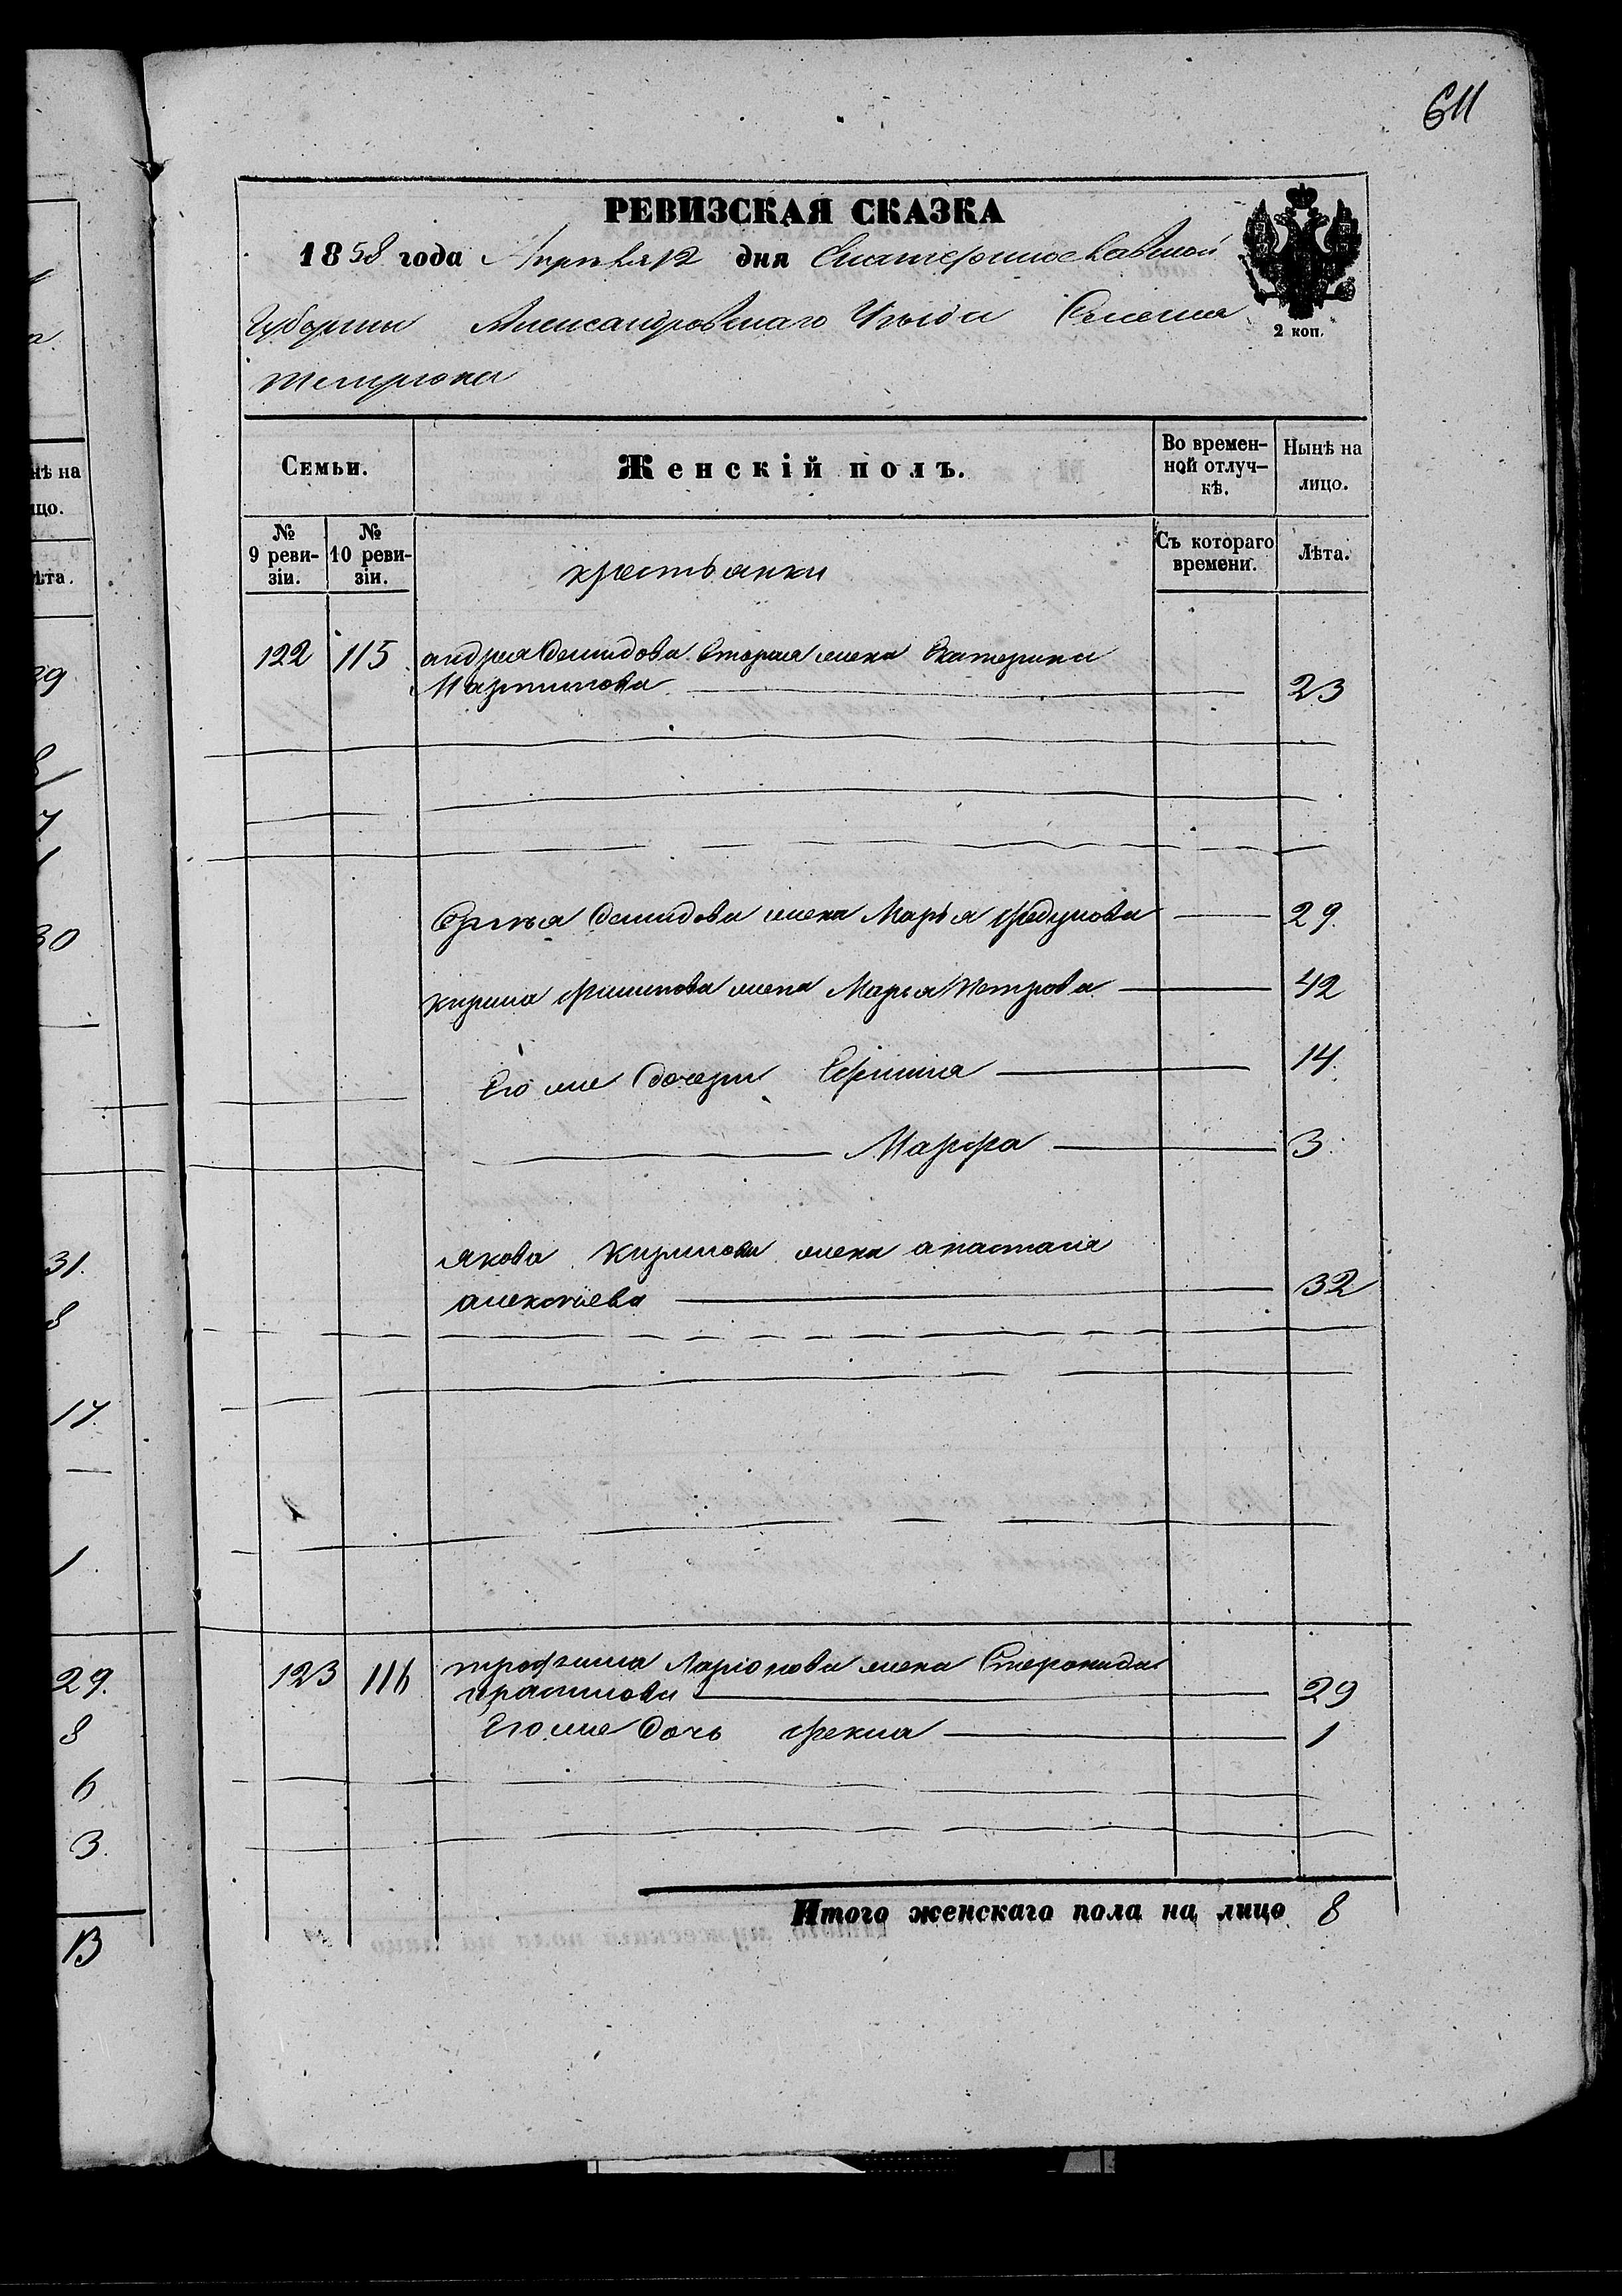 611
РЕВИЗСКАЯ СКАЗКА
1858 года Апреля 12 дня Екатеринославской
Губернии Александровскаго Уѣзда Селения
2 коп.
темрюка
Семьи.
Женскій полъ.
Во времен-
ной отлуч-
кѣ.
Нынѣ на
лицо.
№
9 реви-
зіи.
№
10 реви-
зіи.
крестьянки
Съ котораго
времени.
Лѣта.
122 115 андрея Демидова вторая жена Екатерина
Мартинова 23
Демидова жена Марья 29.
кирила жена Марья Петрова 42
Его же дочери 14.
Марфа 3
якова Кирилова жена анастасия
алексѣева 32
123 116 трофима Ларіонова жена
29
Его же дочь фекла 1
Итого женскаго пола на лицо 8
нѣ на
цо.
ѣта.
29
7
1
30
31.
8
17.
1
29.
8
6
3.
13